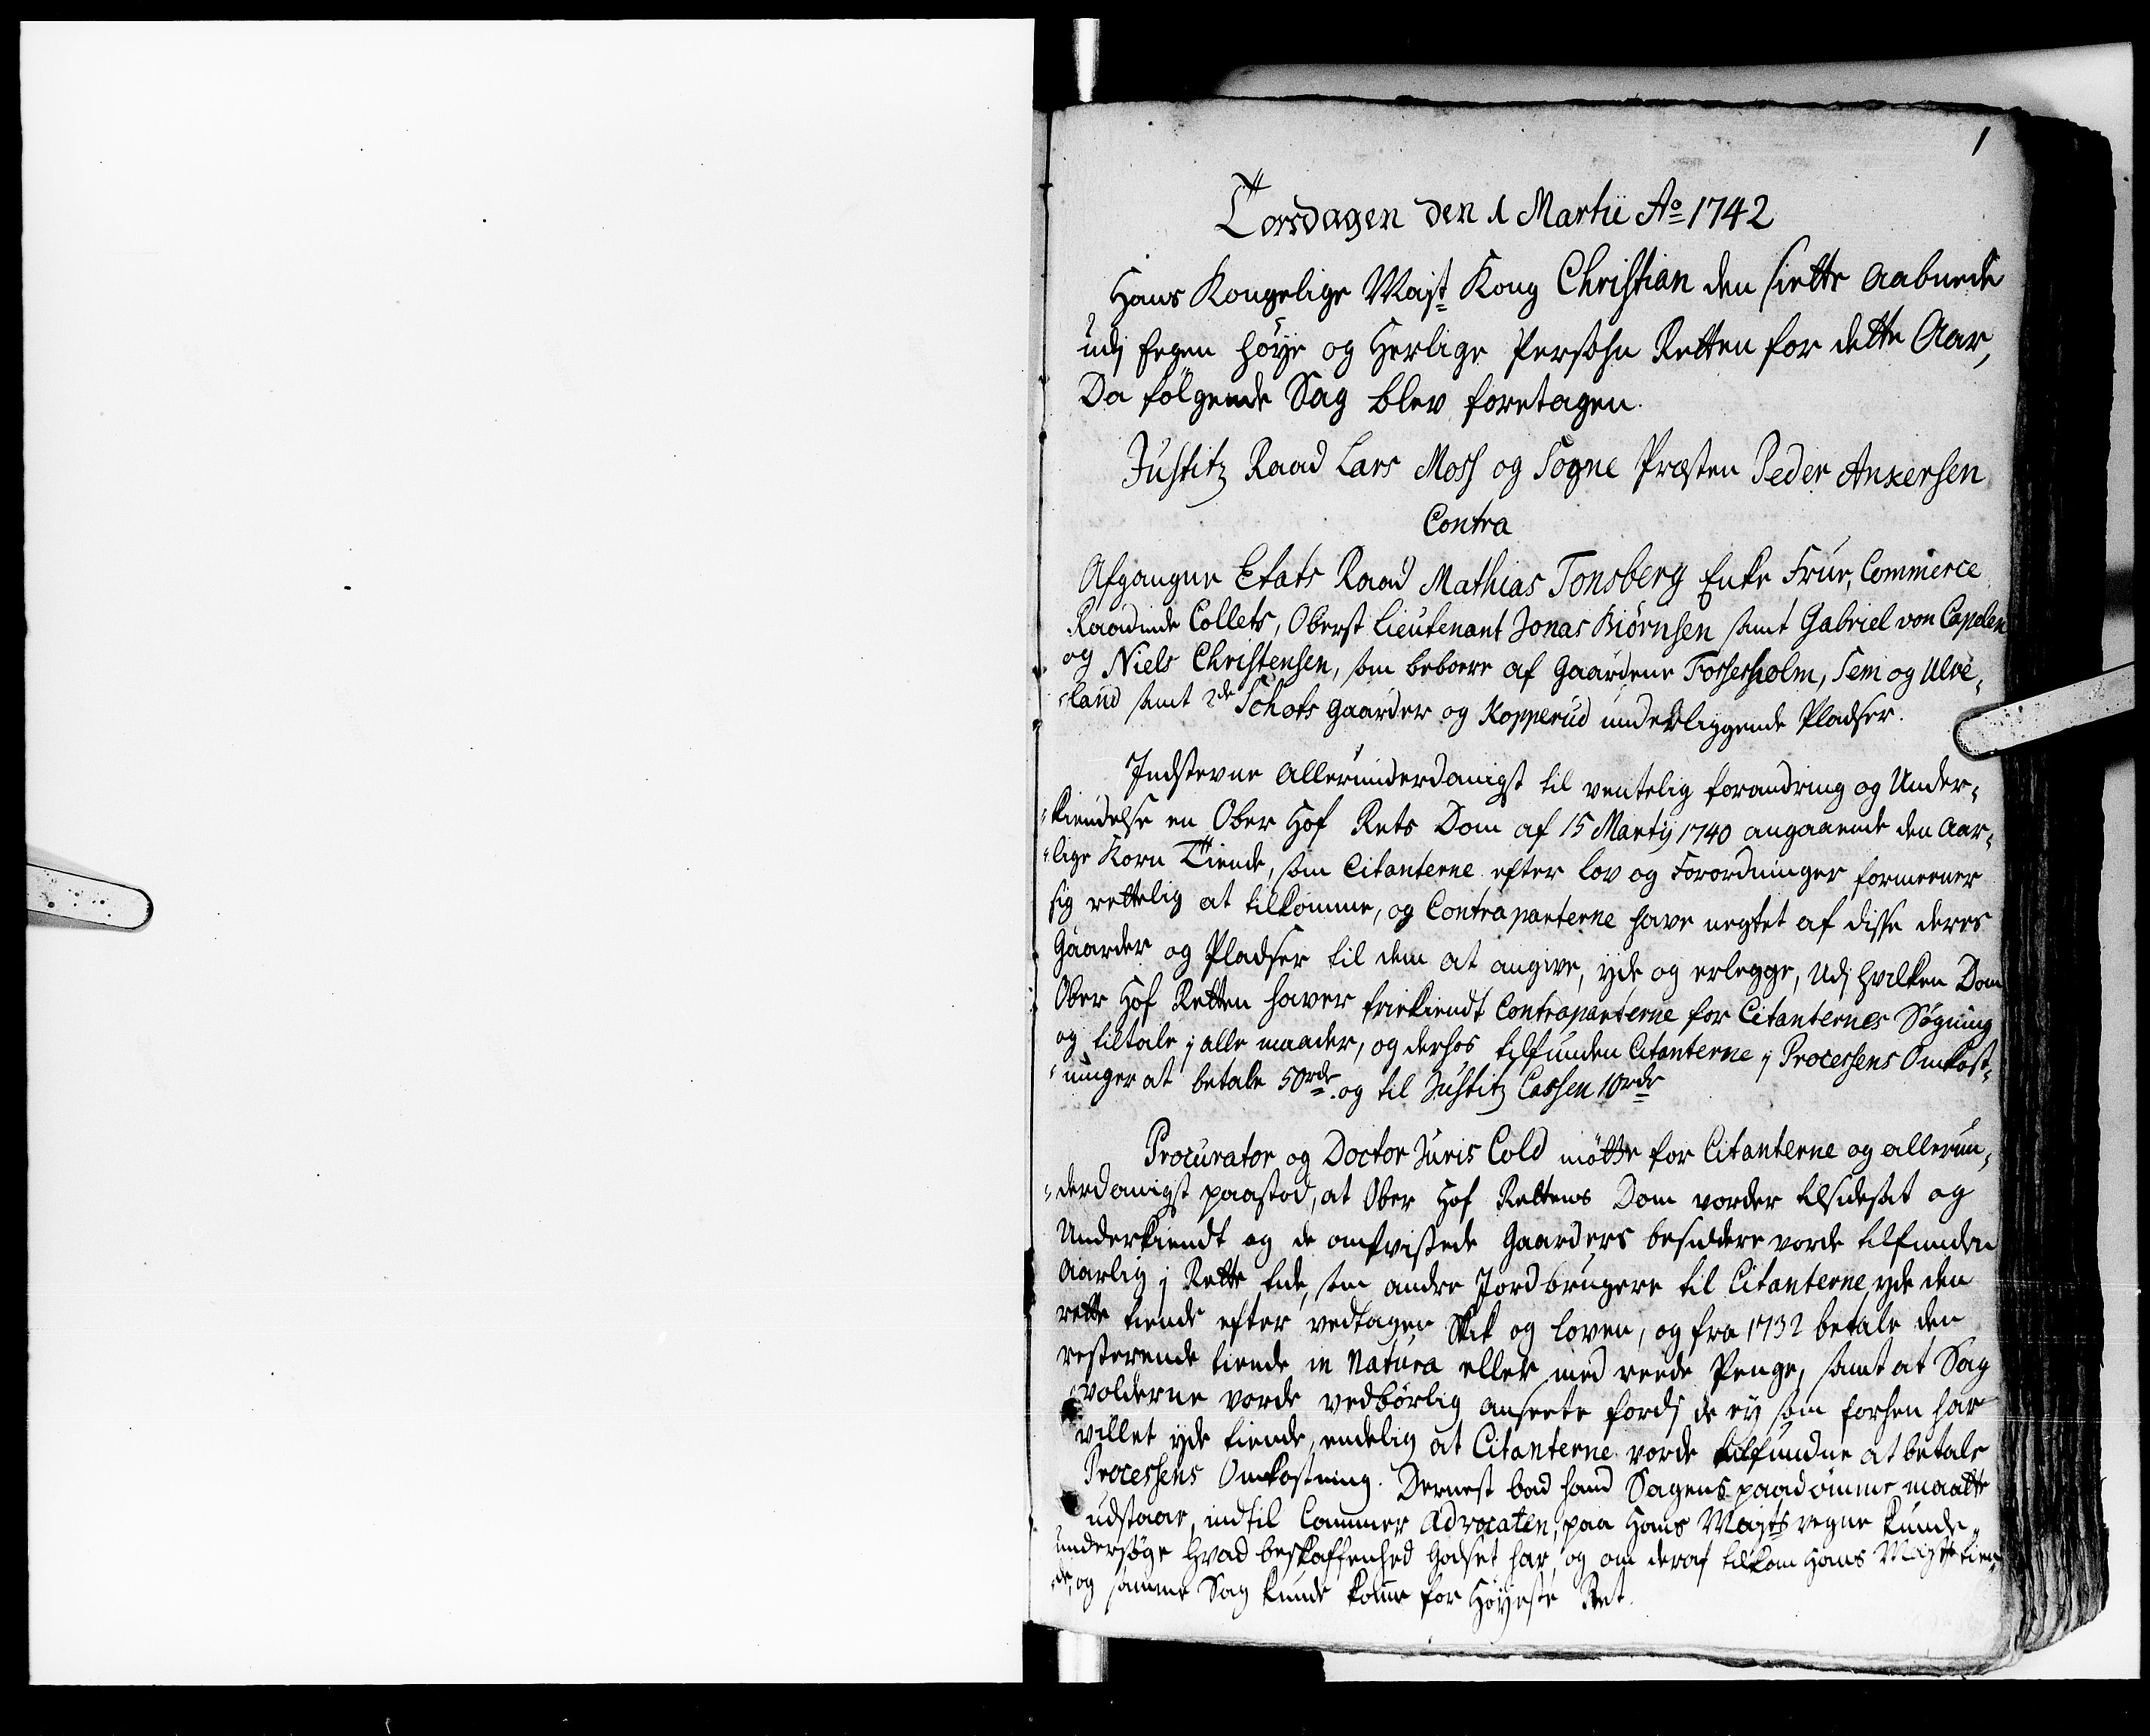 1
Torsdagen den 1 Martii Ao 1742
Hans Kongelige Mayt Kong Christian den siette aabnede
udj Eegen høye og Herlige Persohn Retten for dette Aar,
Da følgende Sag blev foretagen.
Justitz Raad Lars Moss og Sogne Præsten Peder Ankersen
Contra
Afgangne Etats Raad Mathias Tonsberg Enke Frue, Commerce
Raadinde Collets, Oberst Lieutenant Jonas Biørnsen samt Gabriel von Capelen
og Niels Christensen, som beboere af Gaardene Fossesholm, Sem og Ulve-
-land samt 2de Schots gaarder og Kopperud underliggende Pladser.
Indstevne allerunderdanigst til ventelig forandring og Under-
-kiendelse en Ober Hof Rets Dom af 15 Martij 1740 angaaende den aar-
-lige Korn Tiende, som Citanterne efter lov og Forordninger formeener
sig rettelig at tilkomme, og Contraparterne have negtet af disse deres
Gaarder og Pladser til dem at angive, yde og erlegge, Udj hvilken Dom
Ober Hof Retten haver friekiendt Contraparterne for Citanternes Søgning
og tiltale j alle maader, og derhos tilfunden Citanterne j Processens Omkost-
-ninger at betale 50 rdr og til Justitz Cassen 10 rdr
Procurator og Doctor Juris Cold mötte for Citanterne og allerun-
-derdanigst paastod, at Ober Hof Rettens Dom vorder tilsidesat og
Underkiendt og de omtvistede Gaarders besiddere vorde tilfunden
Aarlig j Rette tide, som andre Jordbrugere til Citanterne, yde den
rette tiende efter vedtagen Skik og loven, og fra 1732 betale den
resterende tiende in Natura eller med reede Penge, samt at Sag
volderne vorde vedbörlig anseete fordj de ey som forhen har
villet yde tiende, endelig at Citanterne vorde tilfundne at betale
Processens Omkostning. Dernest bad hand Sagens paadömme maatte
udstaae, indtil Cammer Advocaten, paa Hans Mayts vegne kunde
undersøge hvad beskaffenhed Godset har, og om deraf tilkom Hans Mayt tien-
-de, og samme Sag kunde komme for Høyeste Ret.